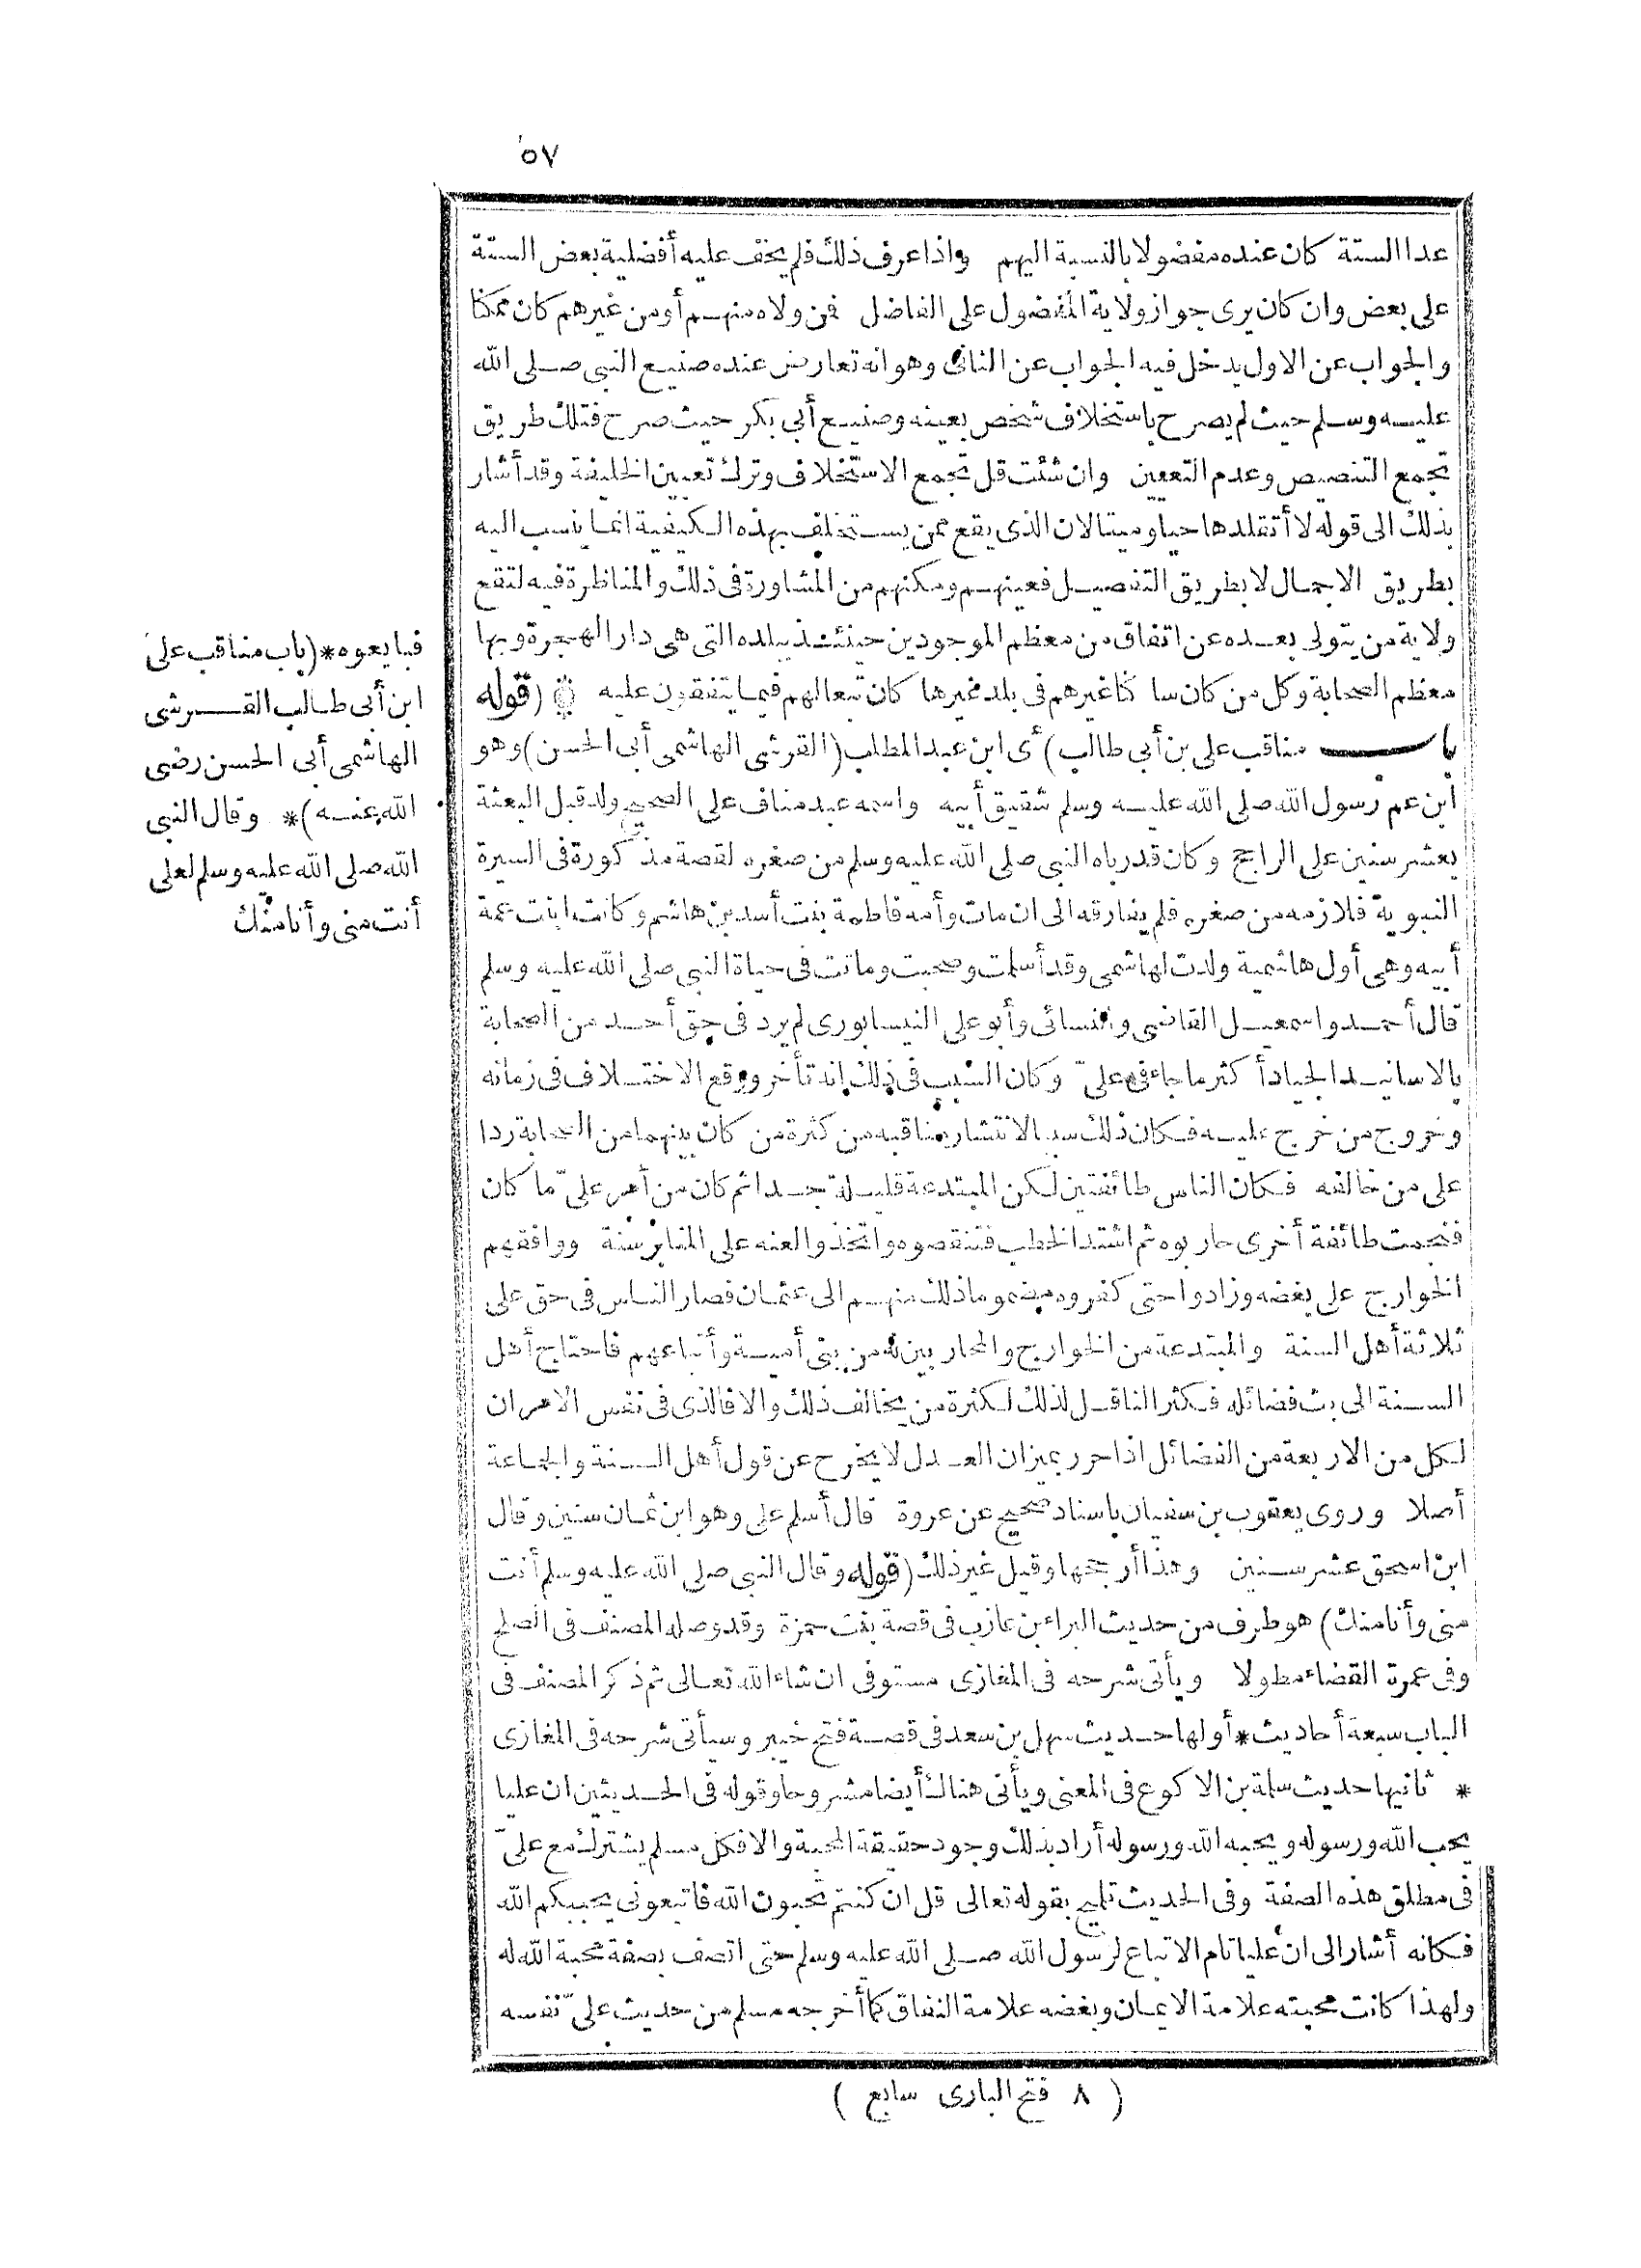 ٥٧
عدا الستة كان عنده مفضولا بالنسبة اليهم واذا عرف ذلك فلم يخف عليه أفضلية بعض الستة
على بعض وان كان يرى جواز ولاية المفضول على الفاضل فمن ولاه منهم أو من غيرهم كان ممكنا
والجواب عن الاول يدخل فيه الجواب عن الثانى وهو انه تعارض عنده صنيع النبى صلى الله
عليه وسلم حيث لم يصرح باستخلاف شخص بعينه وصنيع أبى بكر حيث صرح فتلك طريق
تجمع التنصيص وعدم التعيين وان شئت قل تجمع الاستخلاف وترك تعيين الخليفة وقد أشار
بذلك الى قوله لا أتقلدها حيا وميتا لان الذى يقع ممن يستخلف بهذه الكيفية انما ينسب اليه
بطريق الاجمال لا بطريق التفصيل فعينهم ومكنهم من المشاورة فى ذلك والمناظرة فيه لتقع
ولاية من يتولى بعده عن اتفاق من معظم الموجودين حينئذ ببلده التى هى دار الهجرة وبها
معظم الصحابة وكل من كان ساكنا غيرهم فى بلد غيرها كان تبعا لهم فيما يتفقون عليه ۞ (قوله
باب مناقب على بن أبى طالب) أى ابن عبد المطلب (القرشى الهاشمى أبى الحسن) وهو
ابن عم رسول الله صلى الله عليه وسلم شقيق أبيه واسمه عبد مناف على الصحيح ولد قبل البعثة
بعشر سنين على الراجح وكان قد رباه النبى صلى الله عليه وسلم من صغره لقصة مذكورة فى السيرة
النبوية فلازمه من صغره فلم يفارقه الى ان مات وأمه فاطمة بنت أسد بن هاشم وكانت ابنت عمة
أبيه وهى أول هاشمية ولدت لهاشمى وقد أسلمت وصحبت وماتت فى حياة النبى صلى الله عليه وسلم
قال أحمد واسمعيل القاضى والنسائى وأبو على النيسابورى لم يرد فى حق أحد من الصحابة
بالاسانيد الجياد أكثر ما جاء فى على وكان السبب فى ذلك انه تأخر ووقع الاختلاف فى زمانه
وخروج من خرج عليه فكان ذلك سببا لانتشار مناقبه من كثرة من كان بينهما من الصحابة ردا
على من خالفه فكان الناس طائفتين لكن المبتدعة قليلة جدا ثم كان من أمر علىّ ما كان
فنجمت طائفة أخرى حاربوه ثم اشتد الخطب فتنقصوه واتخذوا لعنه على المنابر سنة ووافقهم
الخوارج على بغضه وزادوا حتى كفروه مضموما ذلك منهم الى عثمان فصار الناس فى حق على
ثلاثة أهل السنة والمبتدعة من الخوارج والمحاربين له من بنى أمية وأتباعهم فاحتاج أهل
السنة الى بث فضائله فكثر الناقل لذلك لكثرة من يخالف ذلك والا فالذى فى نفس الامر ان
لكل من الاربعة من الفضائل اذا حرر بميزان العدل لا يخرج عن قول أهل السنة والجماعة
أصلا وروى يعقوب بن سفيان باسناد صحيح عن عروة قال أسلم على وهو ابن ثمان سنين وقال
ابن اسحق عشر سنين وهذا أرجحها وقيل غير ذلك (قوله وقال النبى صلى الله عليه وسلم أنت
منى وأنا منك) هو طرف من حديث البراء بن عازب فى قصة بنت حمزة وقد وصله المصنف فى الصلح
وفى عمرة القضاء مطولا ويأتى شرحه فى المغازى مستوفى ان شاء الله تعالى ثم ذكر المصنف فى
الباب سبعة أحاديث * أولها حديث سهل بن سعد فى قصة فتح خيبر وسيأتى شرحه فى المغازى
* ثانيها حديث سلمة بن الاكوع فى المعنى ويأتى هناك أيضا مشروحا وقوله فى الحديثين ان عليا
يحب الله ورسوله ويحبه الله ورسوله أراد بذلك وجود حقيقة المحبة والا فكل مسلم يشترك مع علىّ
فى مطلق هذه الصفة وفى الحديث تلميح بقوله تعالى قل ان كنتم تحبون الله فاتبعونى يحببكم الله
فكانه أشار الى ان عليا تام الاتباع لرسول الله صلى الله عليه وسلم حتى اتصف بصفة محبة الله له
ولهذا كانت محبته علامة الايمان وبغضه علامة النفاق كما أخرجه مسلم من حديث علىّ نفسه
فبايعوه * (باب مناقب على
ابن أبى طالب القرشى
الهاشمى أبى الحسن رضى
الله عنه) * وقال النبى
الله صلى الله عليه وسلم لعلى
أنت منى وأنا منك
( ٨ فتح البارى سابع )